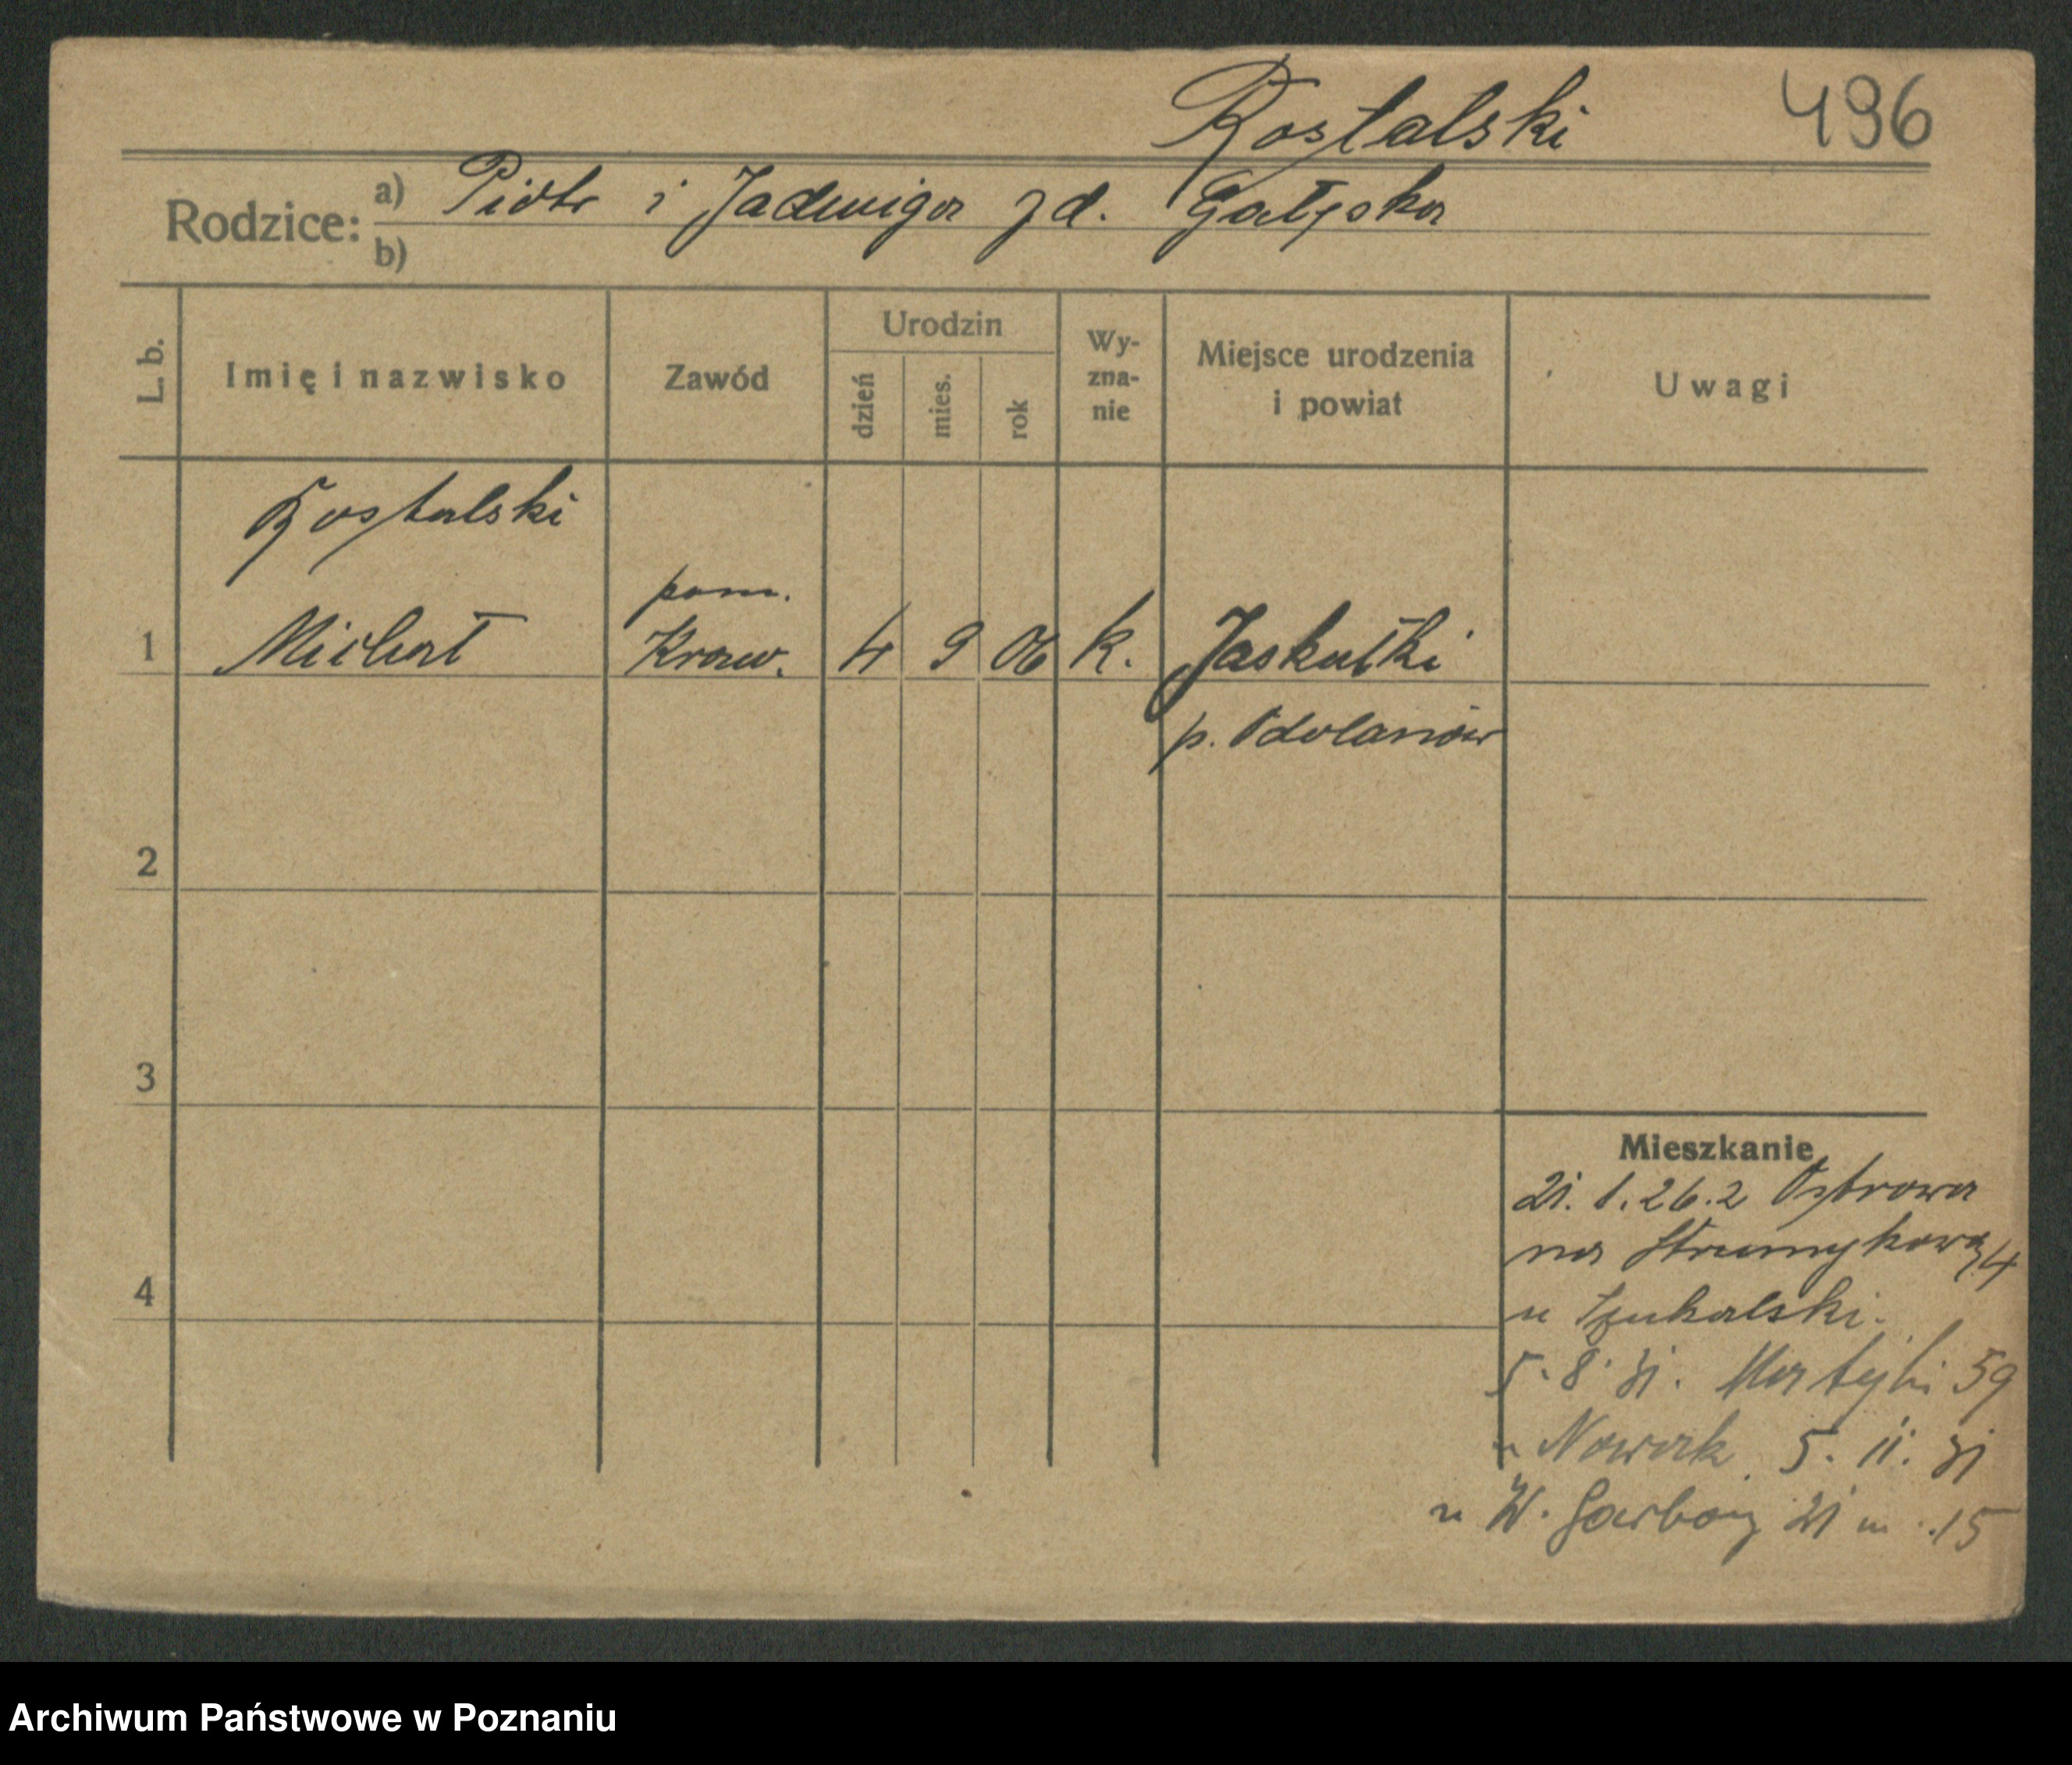 Rostalski 496
Rodzice: a) Piotr i Jadwiga zd. Gałęska
b)
L. b. Imię i nazwisko Zawód Urodzin dzień mies. rok Wy-zna-nie Miejsce urodzenia i powiat Uwagi
Rostalski
pom.
1 Michał Kraw. 4 9 06 k. Jaskułki
p. Odolanów
2
3
Mieszkanie
21. 1. 26. z Ostrowa
na Strumykową 4
4
u
5. 8. 31. Matejki 59
u Nowak 5. 11. 31
u W. Garbary 21 m. 15
Archiwum Państwowe w Poznaniu